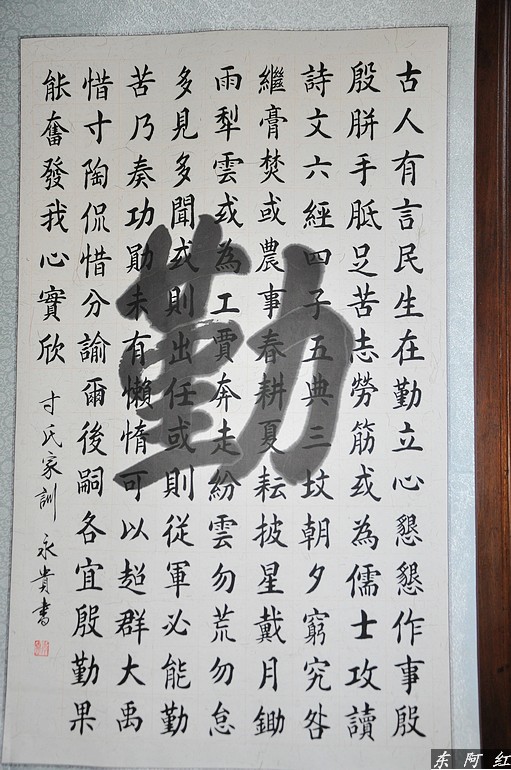 古人有言民生在勤立心懇懇作事殷
殷胼手胝足苦志勞筋或為儒士攻讀
詩文六經四子五典三坟朝夕窮究咎
繼膏焚或農事春耕夏耘披星戴月鋤
雨犁雲或為工賈奔走紛雲勿荒勿怠
多見多聞或則出任或則從軍必能勤
苦乃奏功勛未有懶惰可以超群大禹
惜寸陶侃惜分諭爾後嗣各宜殷勤果
能奮發我心實欣 寸氏家訓 永貴書
勤
东阿红